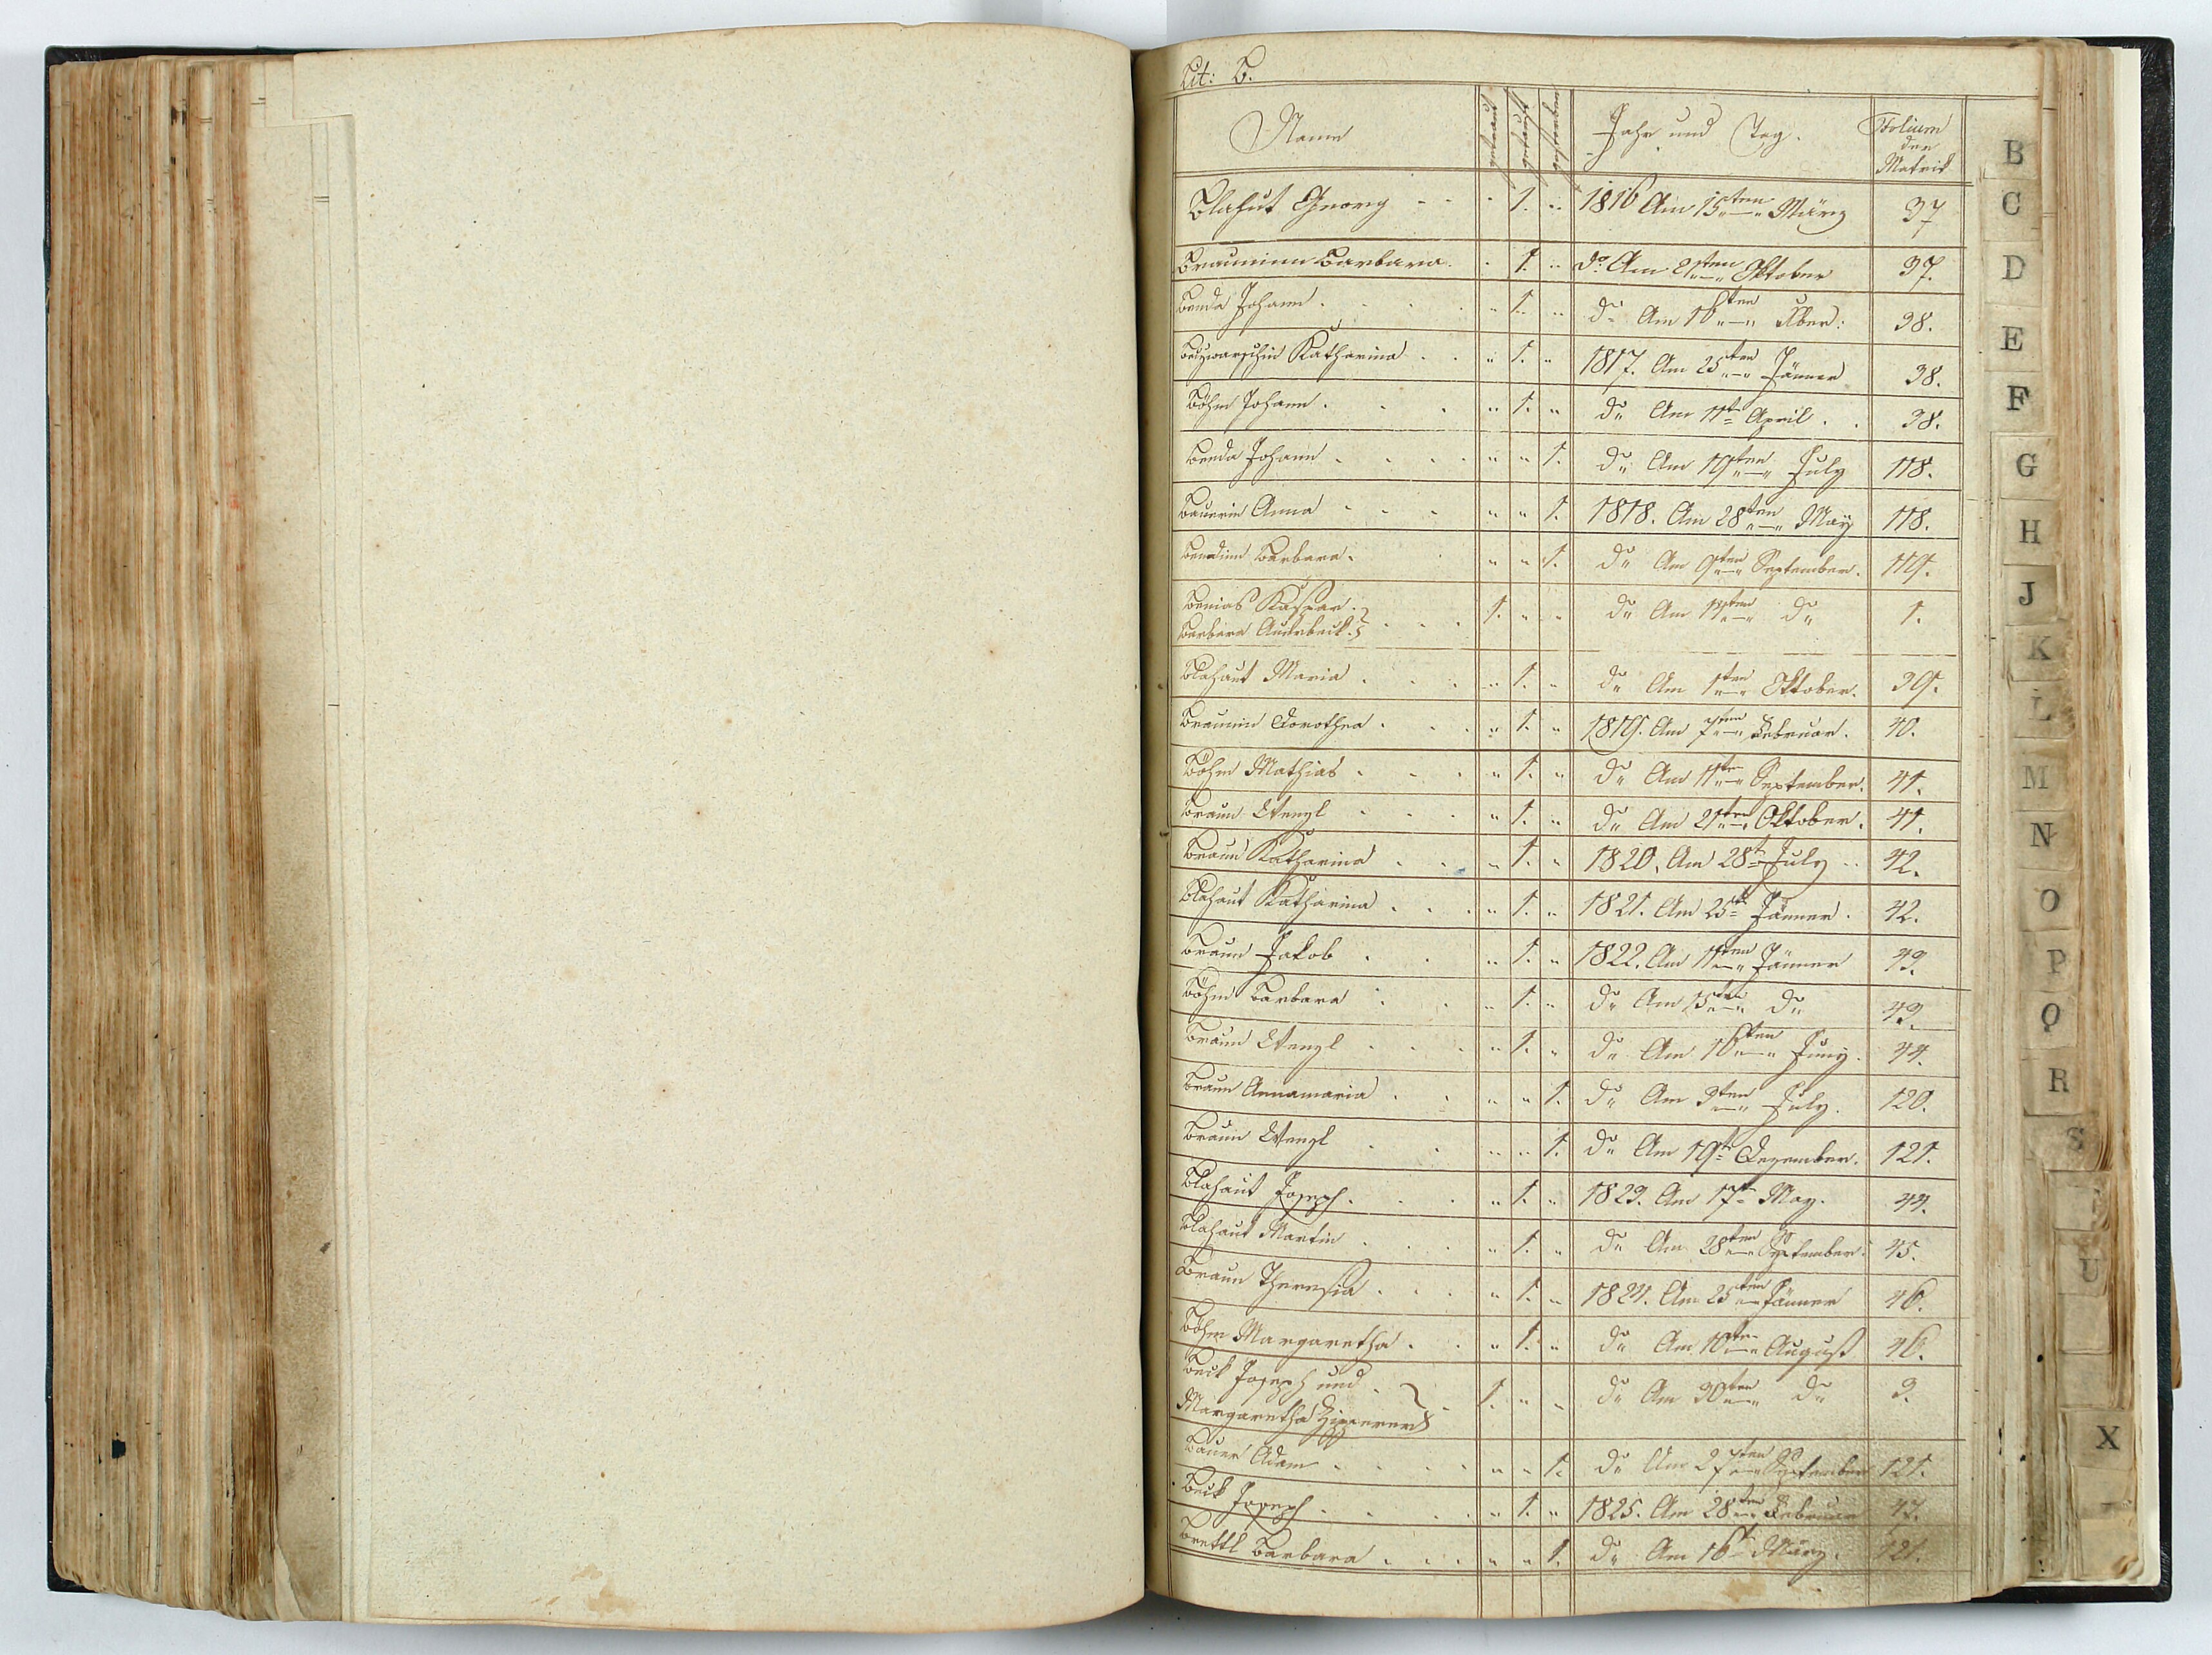 Lit: B.
Name getraut getauft gestorben Jahr und Tag. Folium der Matrik
Blahut Georg - - " 1. " 1816 Am 15ten März 37
Braunin Barbara. " 1. " do Am 21ten Oktober 37.
Benda Johann . . . " 1. " do Am 16ten 38.
Katharina . . " 1. " 1817. Am 25ten Jänner 38.
Böhm Johann . . . " 1. " do Am 11t April . . 38.
Benda Johann . . . . " " 1. do Am 19ten July 118.
Bauerin Anna - - - " " 1. 1818. Am 28ten May 118.
Bendinn Barbara. " " 1. do Am 9ten September. 119.
Kaspar. 1. " " do Am do 1.
Barbara
Blahaut Maria . . . " 1. " do Am 1ten Oktober. 39.
Braunin Dorothea . . . " 1. " 1819. Am 7ten Februar. 40.
Böhm Mathias . . . " 1. " do Am 11ten September. 41.
Braun Wenzl . . . " 1. " do Am 21ten Oktober. 41.
Braun Katharina . . " 1. " 1820. Am 28t July .. 42.
Blahaut Katharina . . . " 1. " 1821. Am 25t Jänner. 42.
Braun Jakob . . " 1. " 1822. Am 11ten Jänner 43.
Böhm Barbara . . . " 1. " do Am 15ten do 43.
Braun Wenzl . . . " 1. " do Am 16ten Juny. 44.
Braun Annamaria . . " " 1. do Am 3ten July. 120.
Braun Wenzl . . " " 1. do Am 19t Dezember. 121.
Blahaut Joseph . . . " 1. " 1823. Am 17t May. 44.
Blahaut Martin . . . " 1. " do Am 28ten September. 45.
Braun Theresia . . . " 1. " 1824. Am 25ten Jänner 46.
Böhm Margaretha . . " 1. " do Am 10ten August 46.
Beck Joseph und 1. " " do Am 30ten do 3.
Margaretha
Bauer Adam . . . . " " 1. do Am 27ten September 121.
Beck Joseph . . . . " 1. " 1825. Am 28ten Februar 47.
Barbara . . . " " 1. do Am 16t März. 121.
B
C
D
E
F
G
H
J
K
L
M
N
O
P
Q
R
S
U
X